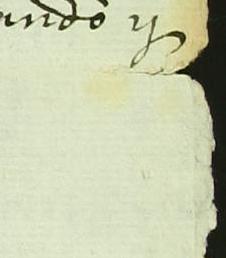 ando y